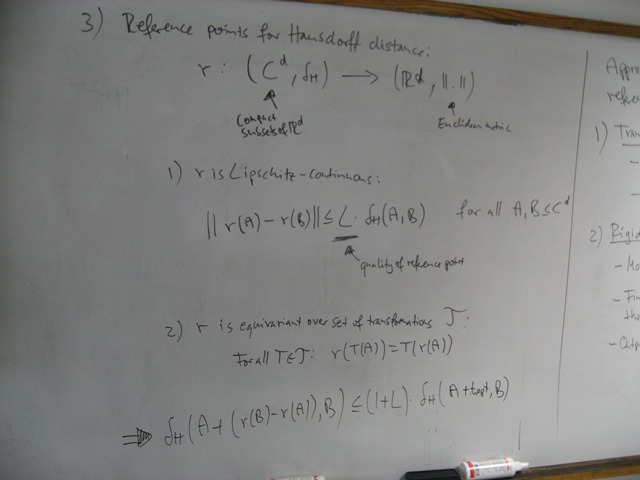 3) Reference points for Hausdorff distance:
r : (C^d, δ_H) → (ℝ^d, ||.||)
Compact
subsets of ℝ^d
Euclidean metric
1) r is Lipschitz-continuous:
|| r(A) - r(B) || ≤ L · δ_H(A, B) for all A, B ≤ C^d
quality of reference point
2) r is equivariant over set of transformations 𝒯:
For all T ∈ 𝒯: r(T(A)) = T(r(A))
⇒ δ_H(A + (r(B) - r(A)), B) ≤ (1+L) · δ_H(A + t_opt, B)
Appro
refere
1) Tran
-
-
2) Rigid
- Mo
- Fin
the
- Outp